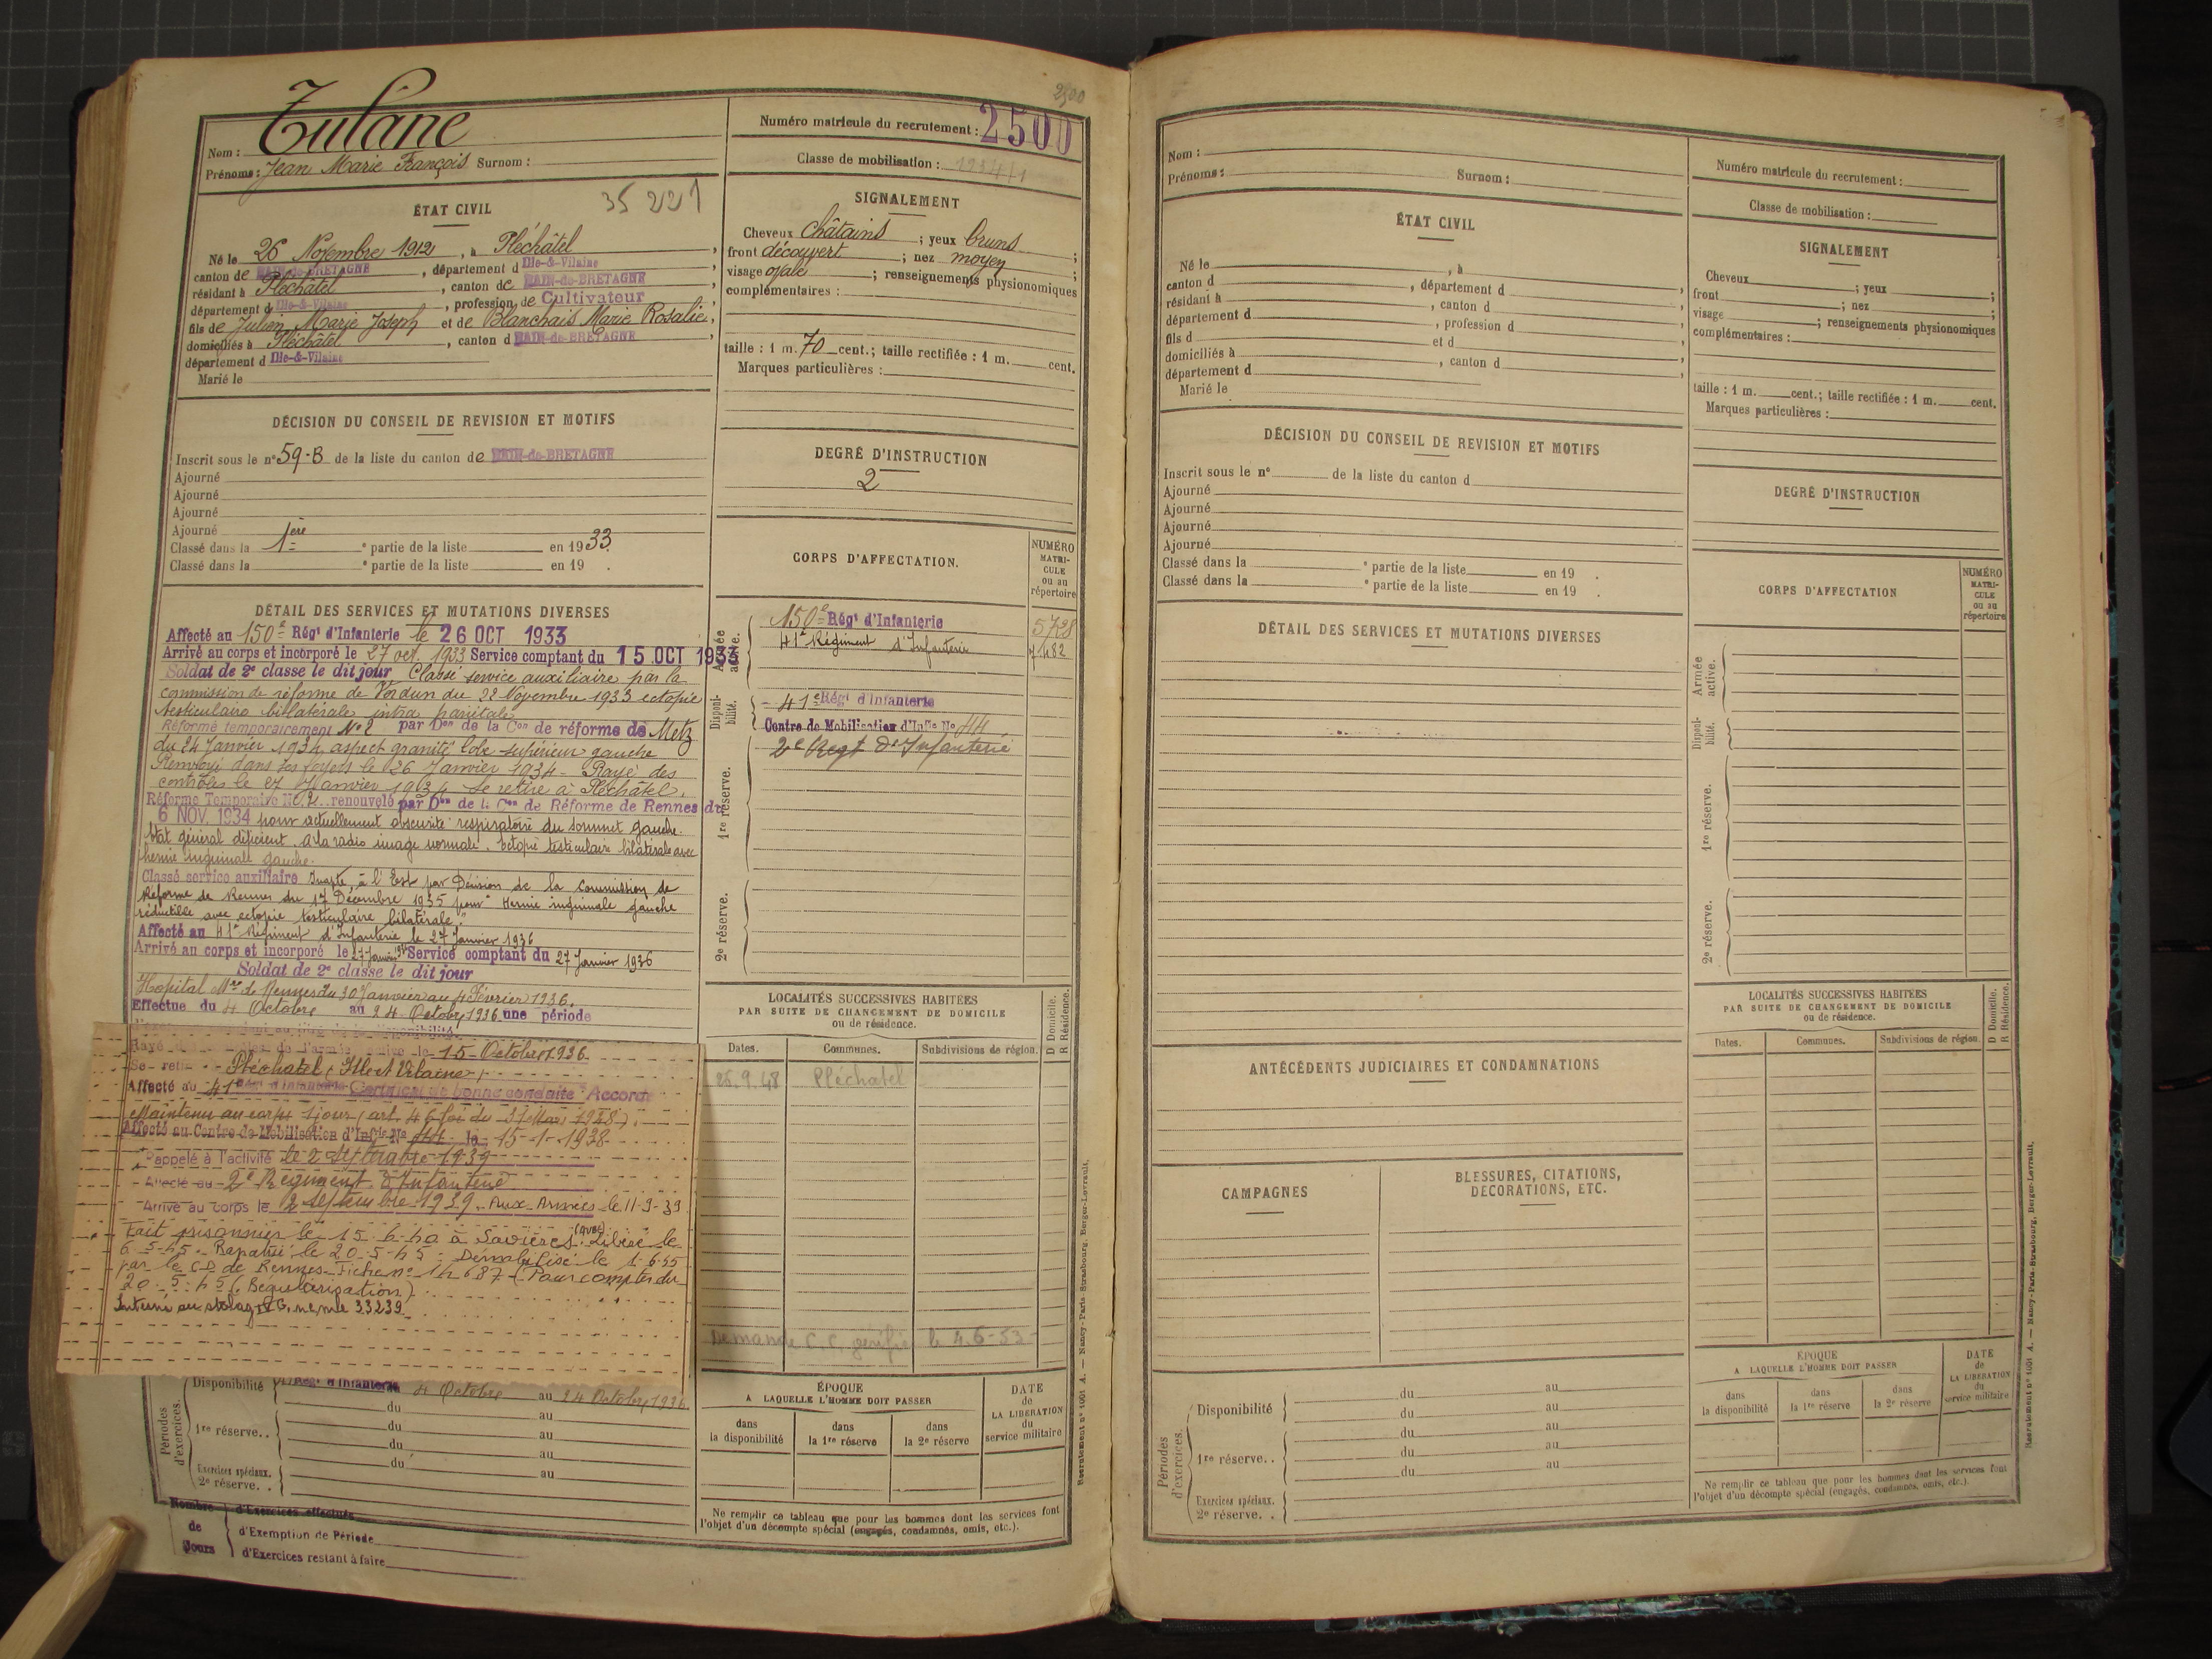 2500
Tulane
Nom :
Prénoms : Jean Marie François Surnom :
Numéro matricule du recrutement : 2500
Classe de mobilisation : 1934/1
35 221
ÉTAT CIVIL
Né le 26 Novembre 1912, à Pléchâtel,
canton de MAIN-de-BRETAGNE, département d Ille-&-Vilaine,
résidant à Pléchâtel, canton de MAIN-de-BRETAGNE,
département d Ille-&-Vilaine, profession de Cultivateur
fils de Julien Marie Joseph et de Blanchais Marie Rosalie,
domiciliés à Pléchâtel, canton d MAIN-de-BRETAGNE,
département d Ille-&-Vilaine
Marié le
SIGNALEMENT
Cheveux châtains ; yeux bruns ;
front découvert ; nez moyen ;
visage ovale ; renseignements physionomiques
complémentaires :
taille : 1 m. 70 cent.; taille rectifiée : 1 m. cent.
Marques particulières :
DÉCISION DU CONSEIL DE REVISION ET MOTIFS
Inscrit sous le n° 59-B de la liste du canton de MAIN-de-BRETAGNE
Ajourné
Ajourné
Ajourné
Ajourné
Classé dans la 1ère e partie de la liste en 1933.
Classé dans la e partie de la liste en 19 .
DEGRÉ D'INSTRUCTION
2
DÉTAIL DES SERVICES ET MUTATIONS DIVERSES
Affecté au 150e Régt d'Infanterie le 26 OCT 1933
Arrivé au corps et incorporé le 27 oct. 1933 Service comptant du 15 OCT 1933
Soldat de 2e classe le dit jour Classé service auxiliaire par la
commission de réforme de Verdun du 22 Novembre 1933 ectopie
testiculaire bilatérale intra pariétale
Réformé temporairement N° 2 par Don de la Con de réforme de Metz
du 24 Janvier 1934 aspect granité lobe supérieur gauche
Renvoyé dans ses foyers le 26 Janvier 1934 - Rayé des
contrôles le 27 Janvier 1934 Se retire à Pléchâtel.
Réforme Temporaire N° 2 renouvelé par Don de la Con de Réforme de Rennes du
6 NOV. 1934 pour actuellement obscurité respiratoire du sommet gauche.
Etat général déficient. A la radio image normale. Ectopie testiculaire bilatérale avec
hernie inguinale gauche.
Classé service auxiliaire Inapte à l'Est par Décision de la Commission de
Réforme de Rennes du 17 Décembre 1935 pour "Hernie inguinale gauche
réductible avec ectopie testiculaire bilatérale."
Affecté au 41e Régiment d'Infanterie le 27 Janvier 1936
Arrivé au corps et incorporé le 27 Janvier 1936 Service comptant du 27 Janvier 1936
Soldat de 2e classe le dit jour
Hopital Mre de Rennes du 30 Janvier au 4 Février 1936.
Effectue du 4 Octobre au 24 Octobre 1936 une période
Rayé des contrôles de l'armée active le 15 Octobre 1936
Se retire Pléchatel (Ille et Vilaine)
Affecté au 41e Régt d'Infanterie Certificat de bonne conduite Accordé
Maintenu au corps 1 jours (art. 46 loi du 31 Mars 1928)
Affecté au Centre de Mobilisation d'Infie No 44 le 15-1-1938
Rappelé à l'activité le 2 Septembre 1939
Affecté au 2e Régiment d'Infanterie
Arrivé au corps le 2 septembre 1939. Aux Armées le 11-9-39
Fait prisonnier le 15-6-40 à Savières (Aube) Libéré le
6-5-45. Rapatrié le 20-5-45. Démobilisé le 1-6-45
par le C.D. de Rennes - Fiche n° 14687 - (Pour compter du
20-5-45 (Régularisation).
Interné au stalag , n° mle 33239.
CORPS D'AFFECTATION.
NUMÉRO MATRICULE ou au répertoire
Armée active.
150e Régt d'Infanterie 5728
41e Régiment d'Infanterie 7482
Disponibilité.
41e Régt d'Infanterie
Centre de Mobilisation d'Infie No 44
1re réserve.
2e Regt d'Infanterie
2e réserve.
LOCALITÉS SUCCESSIVES HABITÉES
PAR SUITE DE CHANGEMENT DE DOMICILE
ou de résidence.
D Domicile.
R Résidence.
Dates. Communes. Subdivisions de région.
25.9.48 Pléchatel
Demande C.C. le 4-6-53
Périodes d'exercices.
Disponibilité Régt d'Infanterie 4 Octobre au 24 Octobre 1936
du au
1re réserve.. du au
du au
du au
Exercices spéciaux. au
2e réserve. .
Nombre de Jours
d'Exercices effectués
d'Exemption de Période
d'Exercices restant à faire
ÉPOQUE
A LAQUELLE L'HOMME DOIT PASSER
dans la disponibilité
dans la 1re réserve
dans la 2e réserve
DATE de LA LIBÉRATION du service militaire
Ne remplir ce tableau que pour les hommes dont les services font
l'objet d'un décompte spécial (engagés, condamnés, omis, etc.).
Recrutement n° 1001 A. — Nancy-Paris-Strasbourg, Berger-Levrault.
Nom :
Prénoms : Surnom :
Numéro matricule du recrutement :
Classe de mobilisation :
ÉTAT CIVIL
Né le , à
canton d , département d ,
résidant à , canton d ,
département d , profession d
fils d et d ,
domiciliés à , canton d ,
département d
Marié le
SIGNALEMENT
Cheveux ; yeux ;
front ; nez ;
visage ; renseignements physionomiques
complémentaires :
taille : 1 m. cent.; taille rectifiée : 1 m. cent.
Marques particulières :
DÉCISION DU CONSEIL DE REVISION ET MOTIFS
Inscrit sous le n° de la liste du canton d
Ajourné
Ajourné
Ajourné
Ajourné
Classé dans la e partie de la liste en 19 .
Classé dans la e partie de la liste en 19 .
DEGRÉ D'INSTRUCTION
DÉTAIL DES SERVICES ET MUTATIONS DIVERSES
CORPS D'AFFECTATION
NUMÉRO MATRICULE ou au répertoire
Armée active.
Disponibilité.
1re réserve.
2e réserve.
LOCALITÉS SUCCESSIVES HABITÉES
PAR SUITE DE CHANGEMENT DE DOMICILE
ou de résidence.
D Domicile.
R Résidence.
Dates. Communes. Subdivisions de région.
ANTÉCÉDENTS JUDICIAIRES ET CONDAMNATIONS
CAMPAGNES
BLESSURES, CITATIONS,
DÉCORATIONS, ETC.
Périodes d'exercices.
Disponibilité du au
du au
1re réserve. . du au
du au
du au
Exercices spéciaux.
2e réserve. .
ÉPOQUE
A LAQUELLE L'HOMME DOIT PASSER
dans la disponibilité
dans la 1re réserve
dans la 2e réserve
DATE de LA LIBÉRATION du service militaire
Ne remplir ce tableau que pour les hommes dont les services font
l'objet d'un décompte spécial (engagés, condamnés, omis, etc.).
Recrutement n° 1001 A. — Nancy-Paris-Strasbourg, Berger-Levrault.